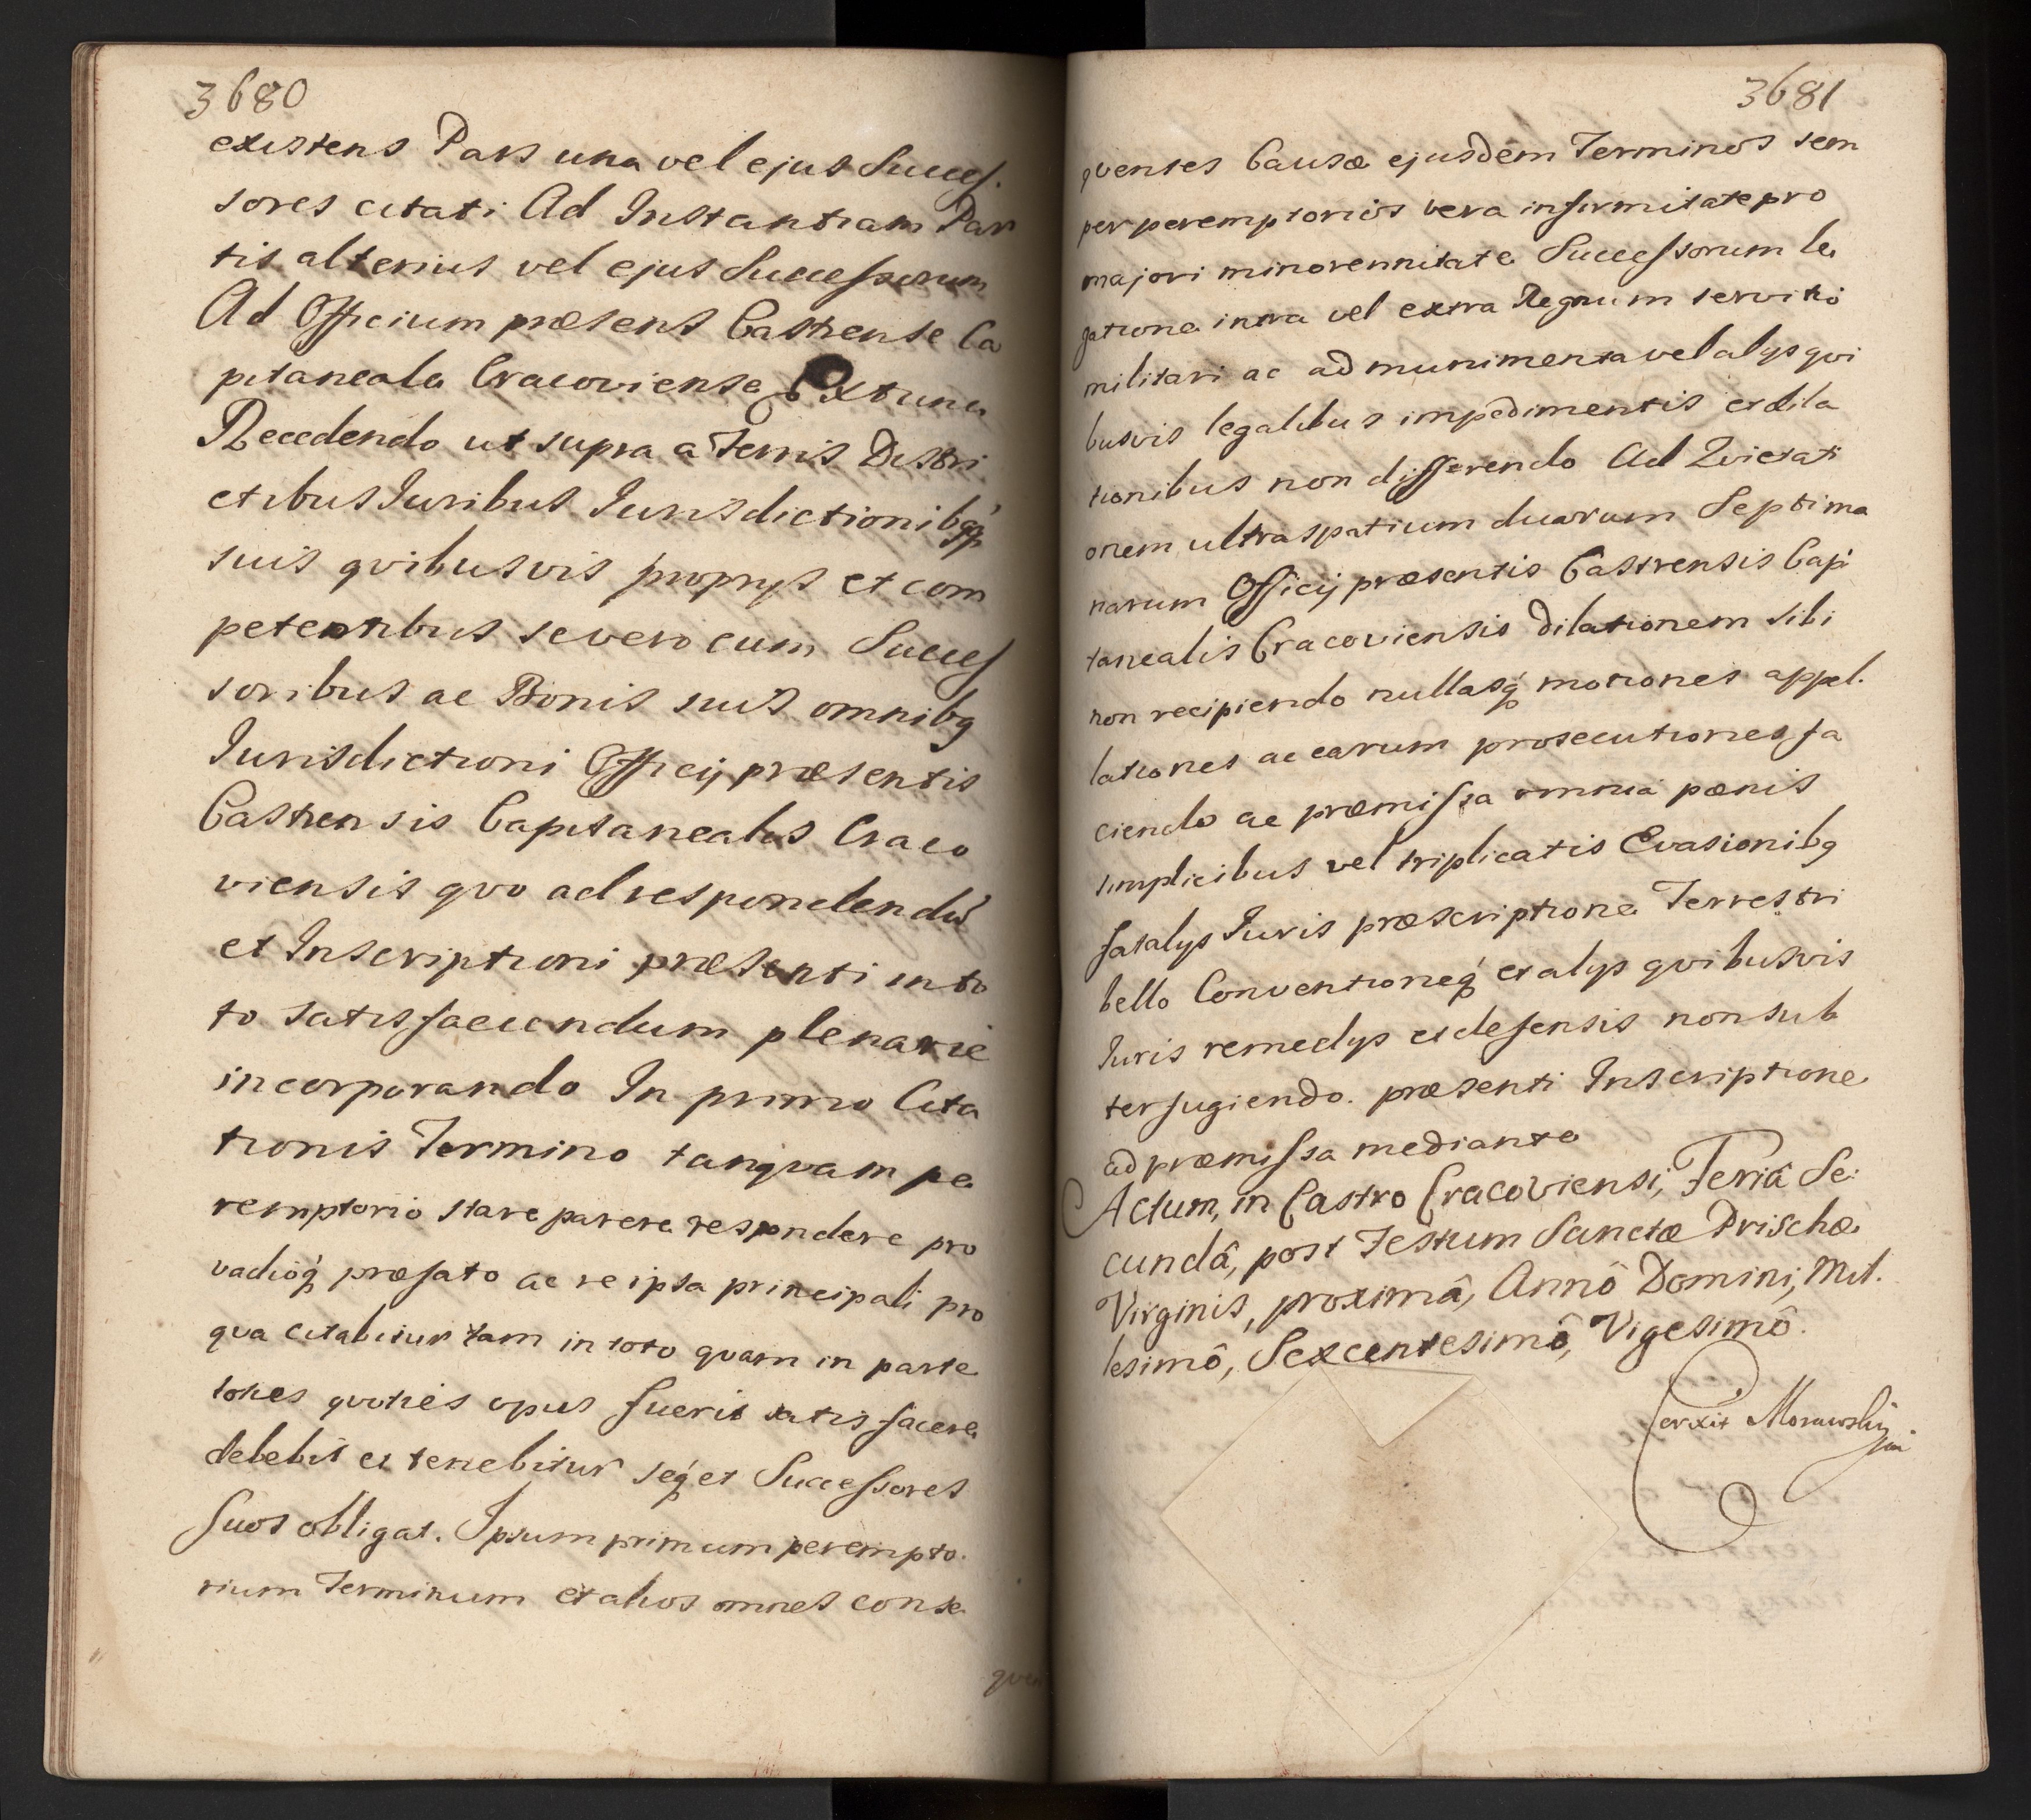 3680
existens Pars una vel ejus Succes.
sores citati Ad Instantiam Par
tis alterius vel ejus Successorum
Ad Officium præsens Castrense Ca
pitaneale Cracoviense Extunc
Recedendo ut supra a Terris Distri
ctibus Iuribus Iurisdictionibqꝫ
suis qvibusvis proprys et com
petentibus se vero cum Succes
soribus ac Bonis suis omnibq
Iurisdictioni Officij præsentis
Castrensis Capitanealis Craco
viensis qvo ad respondendũ
et Inscriptioni præsenti in to
to satisfaciendum plenarie
incorporando In primo Cita
tionis Termino tanqvam pe
remptorio stare parere respondere pro
vadioq́ præfato ac re ipsa principali pro
qva citabitur tam in toto qvam in parte
toties qvoties opus fuerit satisfacere
debebit et tenebitur seq́ et Successores
suos obligat. Ipsum primum perempto.
rium Terminum et alios omnes conse
qven
3681
qventes Causæ ejusdem Terminos sem
per peremptorios vera infirmitate pro
majori minorennitate Successorum le
gatione intra vel extra Regnum servitio
militari ac ad munimenta vel alys qvi
busvis legalibus impedimentis et dila
tionibus non differendo Ad Qvietati
onem ultra spatium duarum Septima
narum Officij præsentis Castrensis Capi
tanealis Cracoviensis dilationem sibi
non recipiendo nullasq́ motiones appel.
lationes ac earum prosecutiones fa
ciendo ac præmissa omnia pœnis
simplicibus vel triplicatis Evasionibq
fatalys Iuris præscriptione Terrestri
bello Conventioneq́ et alys qvibusvis
Iuris remedys et defensis non sub
terfugiendo. præsenti Inscriptione
ad præmissa mediante
Actum, in Castro Cracoviensi, Feriâ Se:
cundâ, post Festum Sanctæ Prischæ
Virginis, proximâ, Annô Domini, Mil.
lesimô, Sexcentesimô, Vigesimô.
Corexit Morawskij